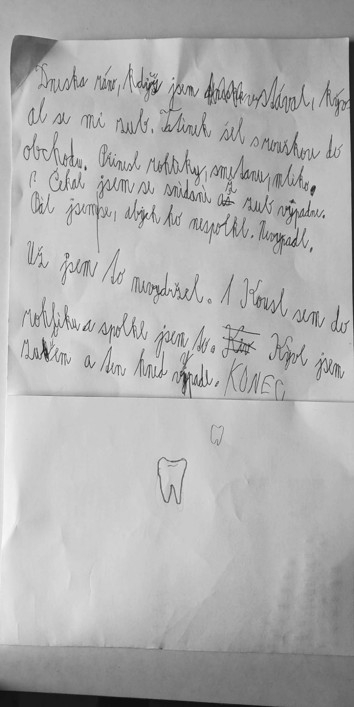 Dneska ráno, když jsem vstával, kýv
al se mi zub. Tatínek šel s rouškou do
obchodu. Přinesl rohlíky, smetanu, mlíko.
Čekal jsem se snídaní až zub vypadne.
Bál jsem se, abych ho nespolkl. Nevypadl.
Už jsem to nevydržel. Kousl sem do
rohlíku a spolkl jsem to. Kývl jsem
zubem a ten hned vypadl. KONEC